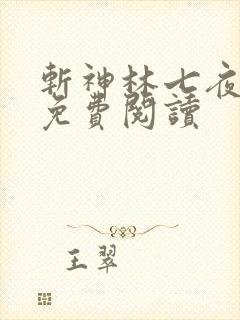 斬神林七夜
免費閱讀
王翠